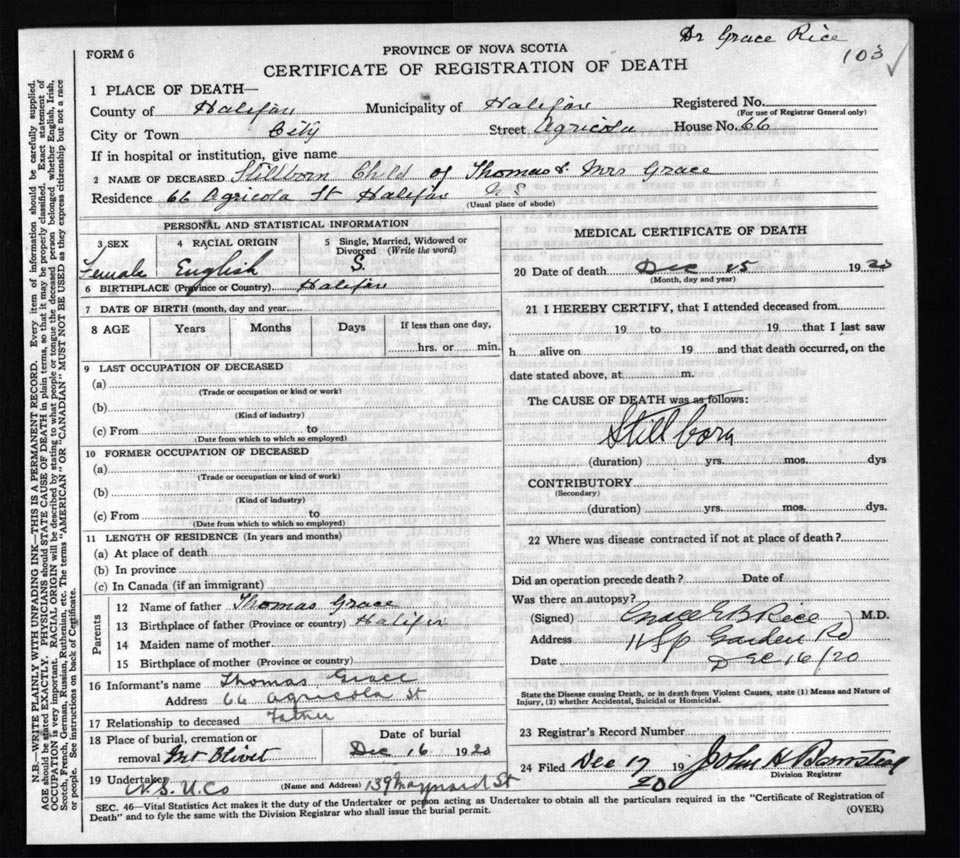 Dr Grace Rice
103
FORM 6
PROVINCE OF NOVA SCOTIA
CERTIFICATE OF REGISTRATION OF DEATH
1 PLACE OF DEATH—
County of Halifax Municipality of Halifax Registered No.
(For use of Registrar General only)
City or Town City Street Agricola House No. 66
If in hospital or institution, give name
2 NAME OF DECEASED Stillborn Child of Thomas & Mrs Grace
Residence 66 Agricola St Halifax N S
(Usual place of abode)
PERSONAL AND STATISTICAL INFORMATION
3 SEX 4 RACIAL ORIGIN 5 Single, Married, Widowed or
Divorced (Write the word)
Female English S.
6 BIRTHPLACE (Province or Country) Halifax
7 DATE OF BIRTH (month, day and year)
8 AGE Years Months Days If less than one day,
hrs. or min.
9 LAST OCCUPATION OF DECEASED
(a)
(Trade or occupation or kind or work)
(b)
(Kind of industry)
(c) From to
(Date from which to which so employed)
10 FORMER OCCUPATION OF DECEASED
(a)
(Trade or occupation or kind of work)
(b)
(Kind of industry)
(c) From to
(Date from which to which so employed)
11 LENGTH OF RESIDENCE (In years and months)
(a) At place of death
(b) In province
(c) In Canada (if an immigrant)
Parents
12 Name of father Thomas Grace
13 Birthplace of father (Province or country) Halifax
14 Maiden name of mother
15 Birthplace of mother (Province or country)
16 Informant's name Thomas Grace
Address 66 Agricola St
17 Relationship to deceased Father
18 Place of burial, cremation or Date of burial
removal Mt Olivet Dec 16 1920
19 Undertaker N.S. U. Co (Name and Address) 139 Maynard St
MEDICAL CERTIFICATE OF DEATH
20 Date of death Dec 15 1920
(Month, day and year)
21 I HEREBY CERTIFY, that I attended deceased from
19 to 19 that I last saw
h alive on 19 and that death occurred, on the
date stated above, at m.
The CAUSE OF DEATH was as follows:
Stillborn
(duration) yrs. mos. dys
CONTRIBUTORY
(Secondary)
(duration) yrs. mos. dys.
22 Where was disease contracted if not at place of death?
Did an operation precede death? Date of
Was there an autopsy?
(Signed) Grace E B Rice M.D.
Address Garden Rd
Date Dec 16/20
State the Disease causing Death, or in death from Violent Causes, state (1) Means and Nature of
Injury, (2) whether Accidental, Suicidal or Homicidal.
23 Registrar's Record Number
24 Filed Dec 17 19 20 John H Barnstead
Division Registrar
SEC. 46—Vital Statistics Act makes it the duty of the Undertaker or person acting as Undertaker to obtain all the particulars required in the "Certificate of Registration of
Death" and to fyle the same with the Division Registrar who shall issue the burial permit. (OVER)
N.B.—WRITE PLAINLY WITH UNFADING INK—THIS IS A PERMANENT RECORD. Every item of information should be carefully supplied.
AGE should be stated EXACTLY. PHYSICIANS should STATE CAUSE OF DEATH in plain terms, so that it may be properly classified. Exact statement of
OCCUPATION is very important. RACIAL ORIGIN will be described by stating to what people or tongue the deceased person belonged whether English, Irish,
Scotch, French, German, Russian, Ruthenian, etc. The terms "AMERICAN" OR "CANADIAN" MUST NOT BE USED as they express citizenship but not a race
or people. See instructions on back of Certificate.